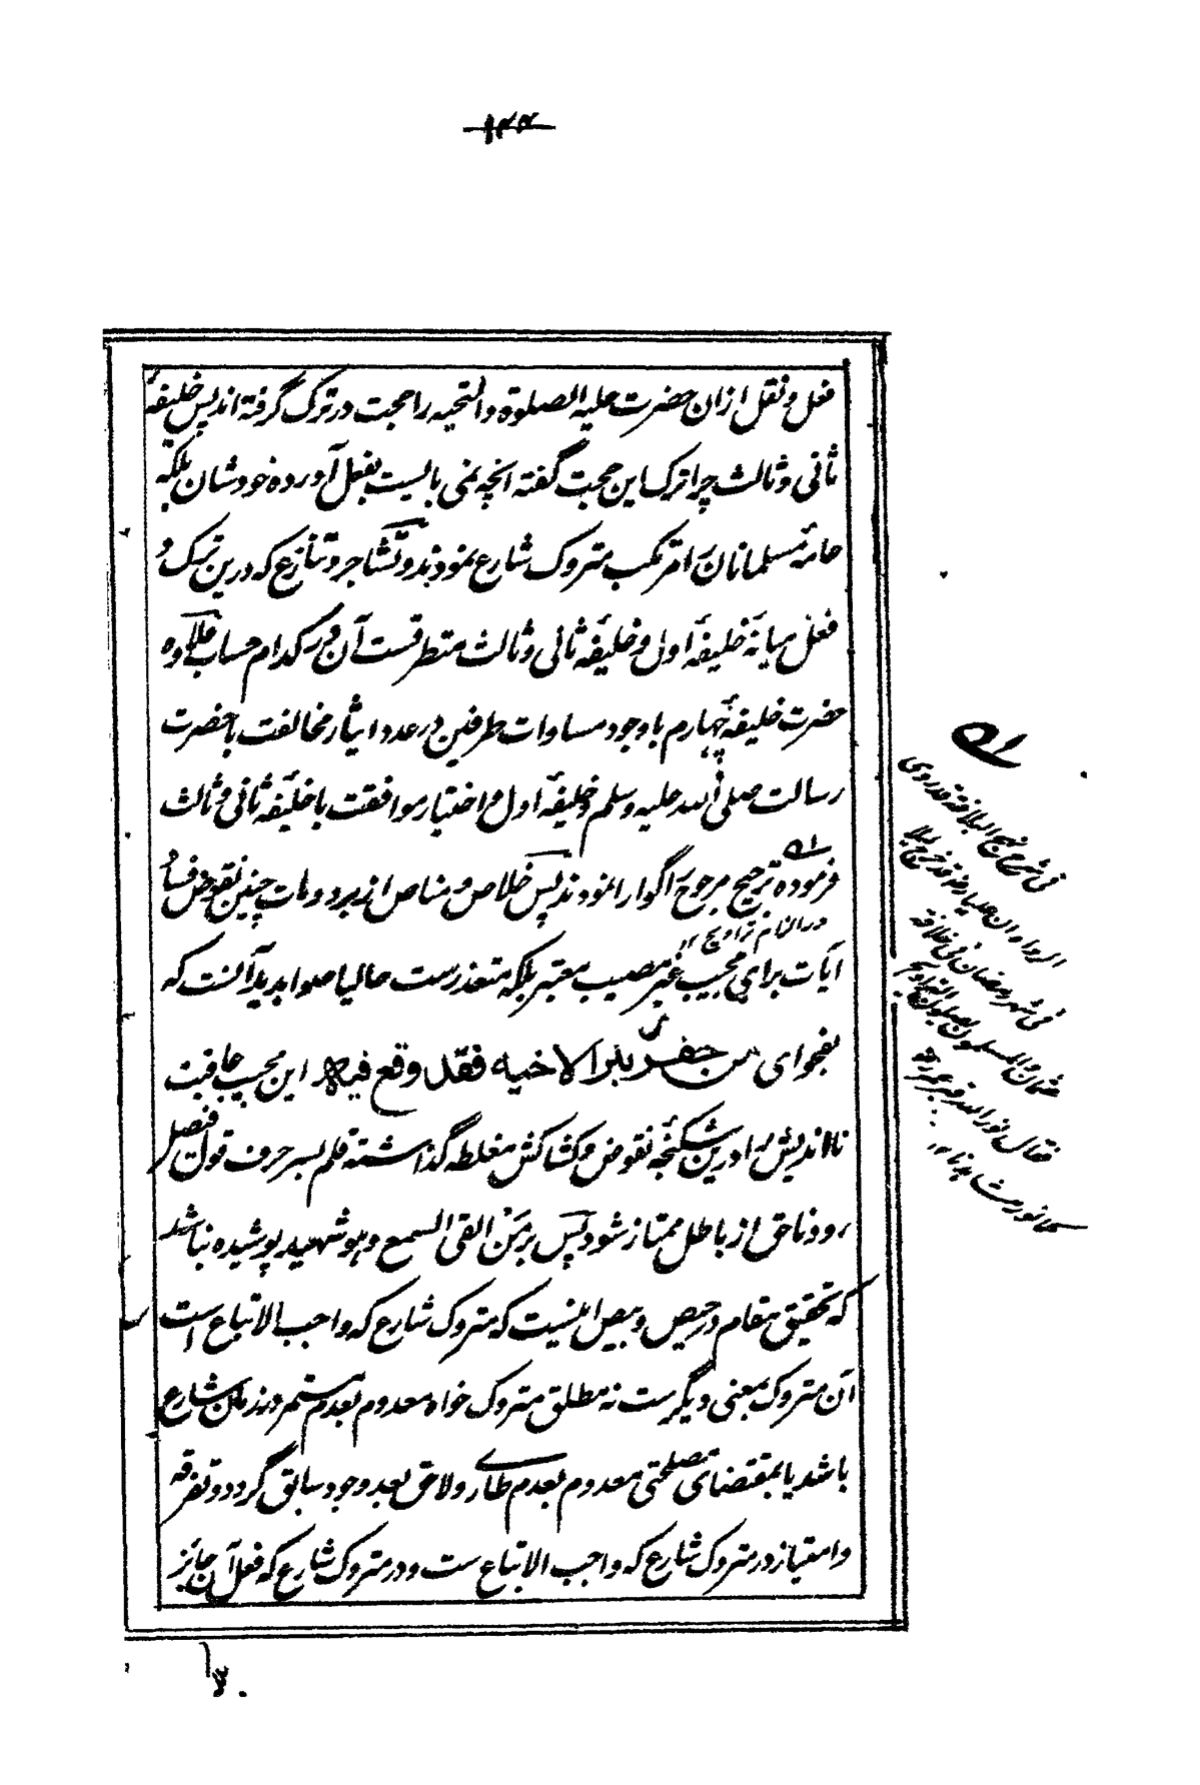 ۱۳۳
فعل و نقل ازان حضرت علیه الصلوة والتحیه را حجت در ترک گرفته اند پس خلیفهٔ
ثانی و ثالث چرا ترک این حجت گفته انچه نمی بایست بفعل آورده خودشان بلکه
عامهٔ مسلمانان را مرتکب متروک شارع نمودند و تشاجر و تنازع که درین ترک و
فعل میانهٔ خلیفهٔ اول و خلیفهٔ ثانی و ثالث متطرقست آن در کدام حساب علاوه
حضرت خلیفهٔ چهارم باوجود مساوات طرفین در عدد ایثار مخالفت با حضرت
رسالت صلی الله علیه وسلم و خلیفهٔ اول و اختیار موافقت با خلیفهٔ ثانی و ثالث
فرموده ترجیح مرجوح را گوارا نمودند پس خلاص و مناص از برد و مات چنین نقوض فساد
در التزام تراویح ۱۲
آیات برای مجیب غیر مصیب معتبر بلکه متعذرست حالیا صوابدید آنست که
بفحوای من حفر بئرا لاخیه فقد وقع فیه این مجیب عاقبت
نااندیش را درین شکنجهٔ نقوض و کشاکش مغلطه گذاشته قلم بسر حرف قول فیصل
رود تا حق از باطل ممتاز شود پس بر من القی السمع وهو شهید پوشیده نباشد
که تحقیق مقام در حیص و بیص اینست که متروک شارع که واجب الاتباع است
آن متروک بمعنی دیگرست نه مطلق متروک خواه معدوم بعدم مستمر در زمان شارع
باشد یا بمقتضای مصلحتی معدوم بعدم طاری ولاحق بعد وجود سابق گردد و تفرقه
وامتیاز در متروک شارع که واجب الاتباع ست و در متروک شارع که فعل آن جائز
فی شرح نهج البلاغة قد روی
الرواة ان علیا رضه قد خرج لیلا
فی شهر رمضان فی خلافة
عثمان والمسلمون یصلون التراویح
فقال نور الله قبر عمر رضه
کما نور مساجدنا ۱۲